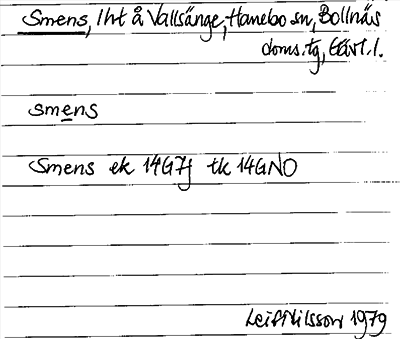 Smens, lht å Vallsänge, Hanebo sn, Bollnäs
doms.tg, Gävl. l.
smens
Smens ek 14G7j tk 14GNO
Leif Nilsson 1979